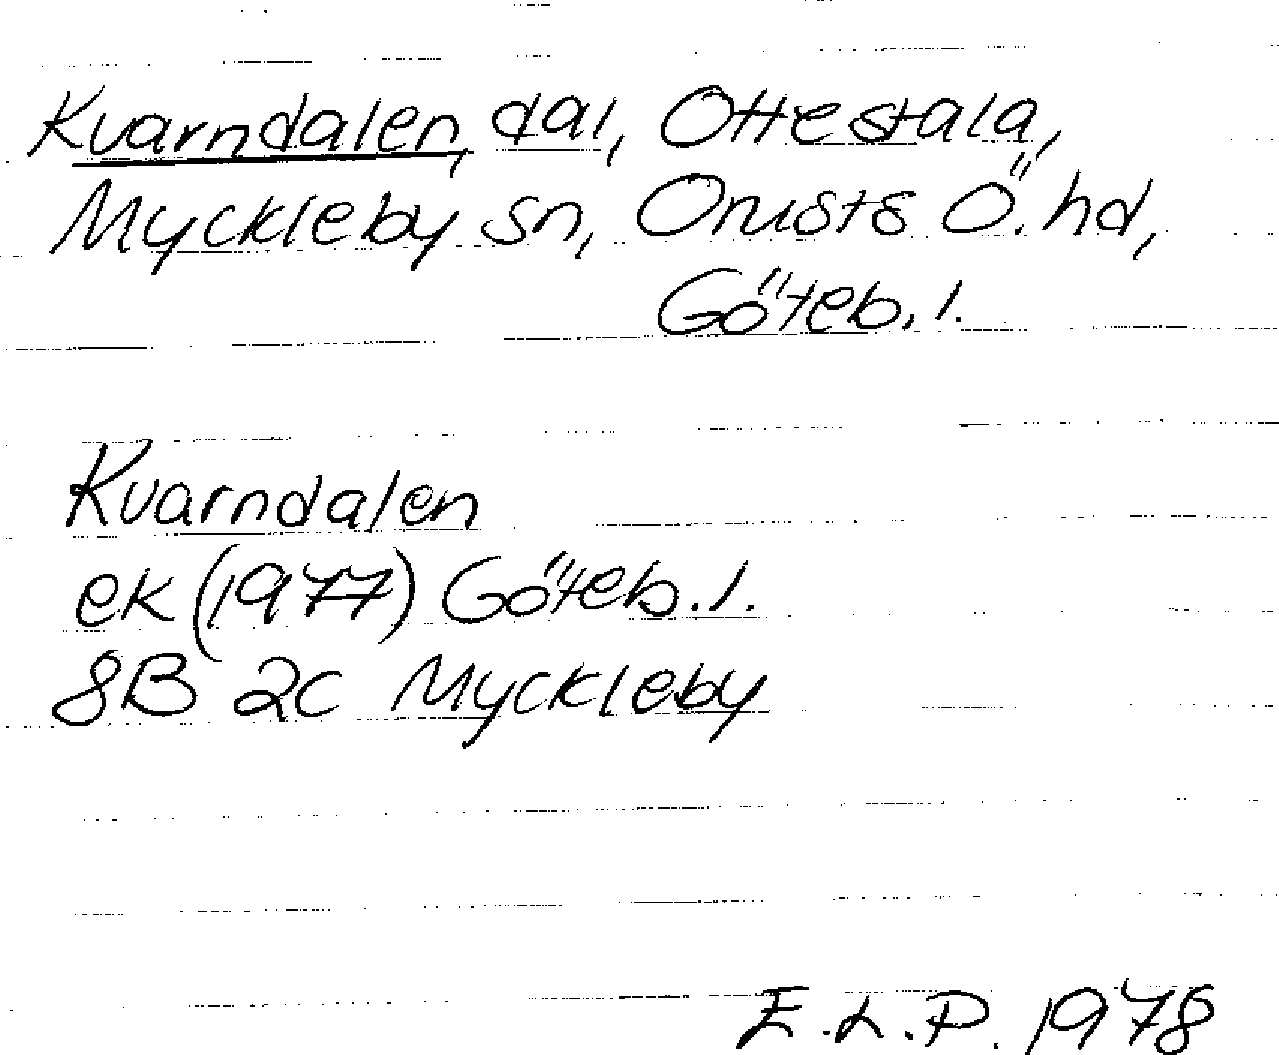 Kvarndalen, dal, Ottestala,
Myckleby sn, Orusts Ö. hd,
Göteb. l.
Kvarndalen
ek (1977) Göteb. l.
8B 2c Myckleby
E.L.P. 1978